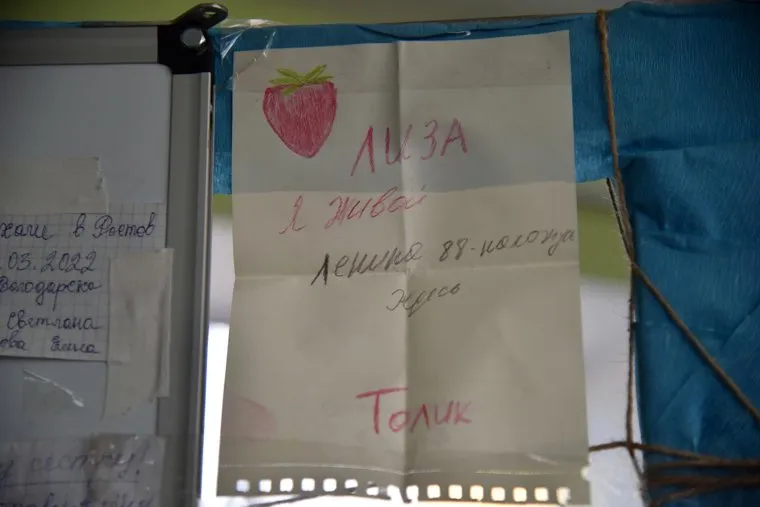 хали в Ростов
.03.2022
Володарско
Светлана
ова Элла
сестру!
ЛИЗА
Я Живой
Ленина 88-
Толик